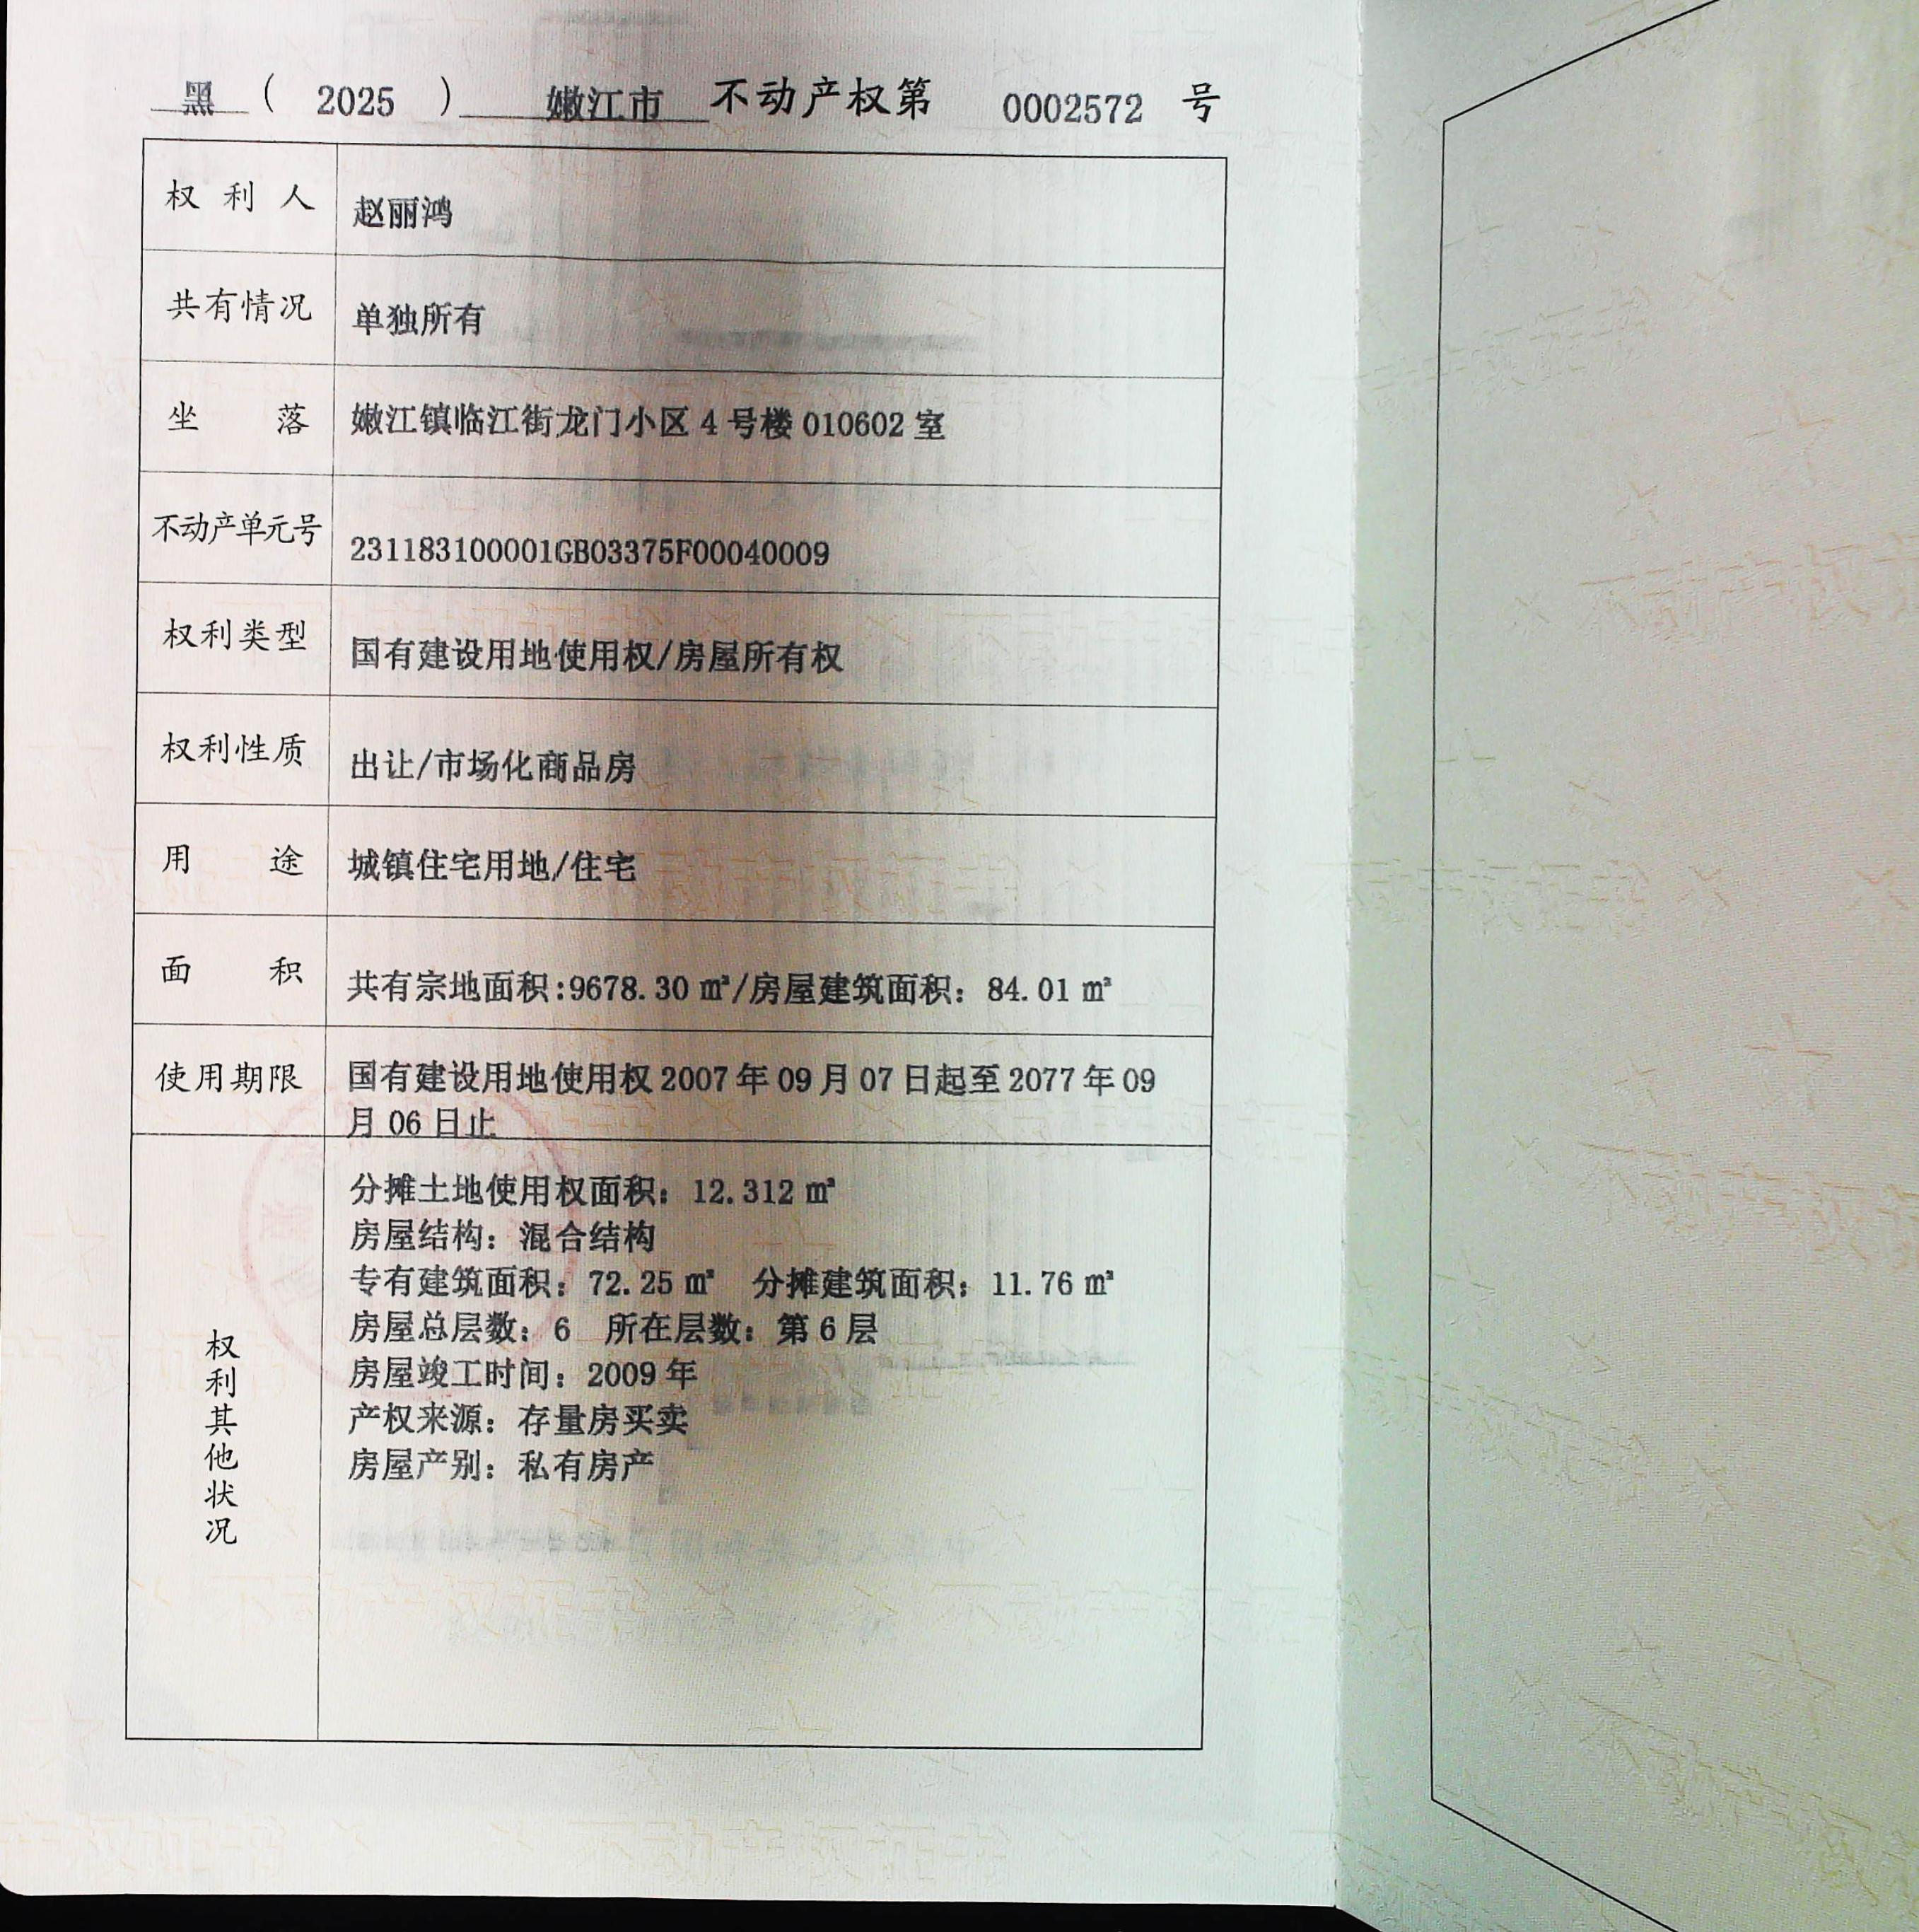 黑 （ 2025 ） 嫩江市 不动产权第 0002572 号
权利人 赵丽鸿
共有情况 单独所有
坐落 嫩江镇临江街龙门小区 4 号楼 010602 室
不动产单元号 231183100001GB03375F00040009
权利类型 国有建设用地使用权/房屋所有权
权利性质 出让/市场化商品房
用途 城镇住宅用地/住宅
面积 共有宗地面积:9678.30 ㎡/房屋建筑面积：84.01 ㎡
使用期限 国有建设用地使用权 2007 年 09 月 07 日起至 2077 年 09
月 06 日止
权利其他状况
分摊土地使用权面积：12.312 ㎡
房屋结构：混合结构
专有建筑面积：72.25 ㎡ 分摊建筑面积：11.76 ㎡
房屋总层数：6 所在层数：第 6 层
房屋竣工时间：2009 年
产权来源：存量房买卖
房屋产别：私有房产